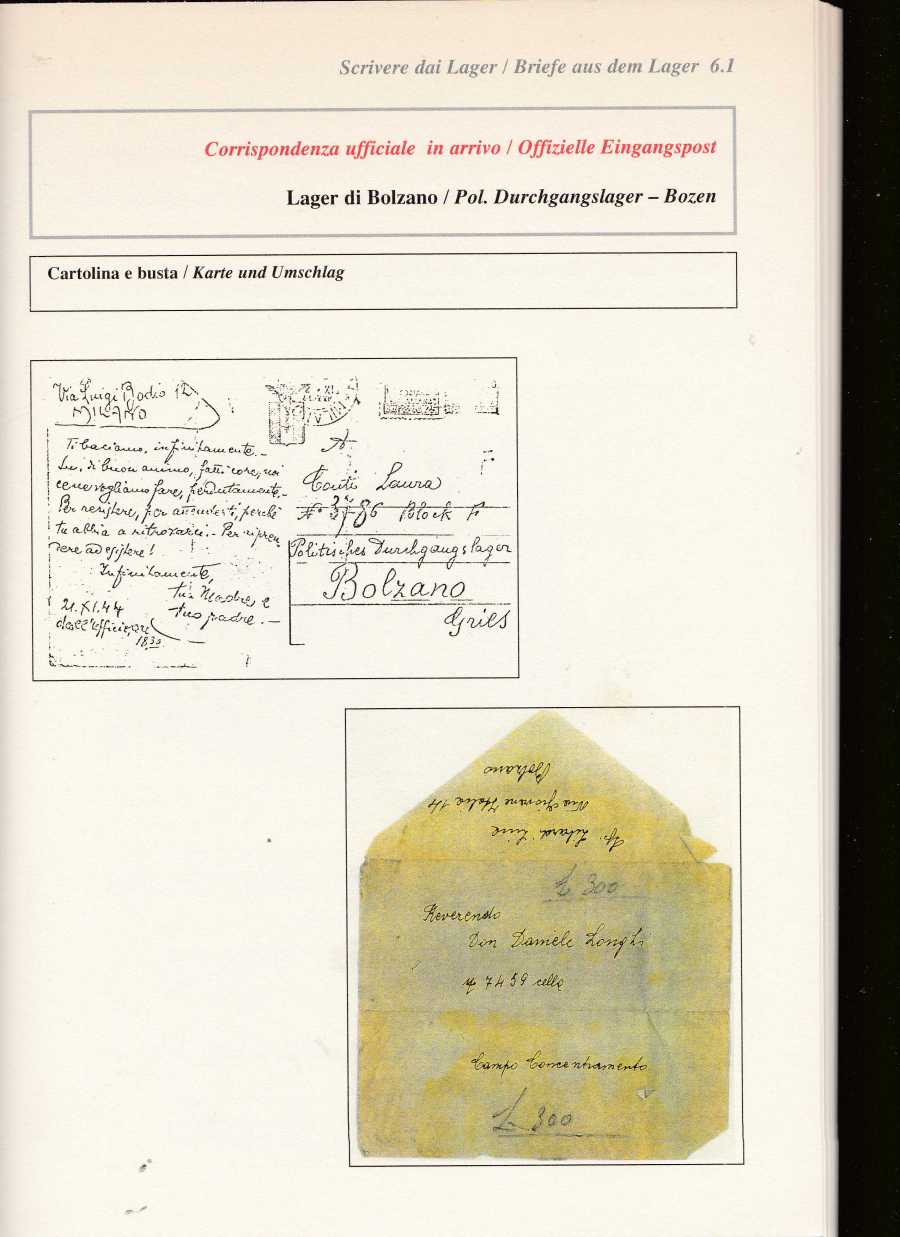 Scrivere dai Lager / Briefe aus dem Lager 6.1
Corrispondenza ufficiale in arrivo / Offizielle Eingangspost
Lager di Bolzano / Pol. Durchgangslager – Bozen
Cartolina e busta / Karte und Umschlag
Via Luigi Bodio 12
MILANO
Ti baciamo, infinitamente.-
Su, di buon animo, fatti core, noi
ce ne vogliamo fare, perdutamente.-
Per resistere, per attenderti, perché
tu abbia a ritrovarci.- Per ripren
dere ad esistere!
Infinitamente,
tua Madre e
tuo padre.-
21.XI.44
dall'ufficio, ore
18,30
A
F
Conti Laura
N° 3786 Block F
Politisches Durchgangslager
Bolzano
Gries
Bolzano
Via Giovane Italia 14
£ 300
Reverendo
Don Daniele Longhi
7459 cella
Campo Concentramento
£ 300